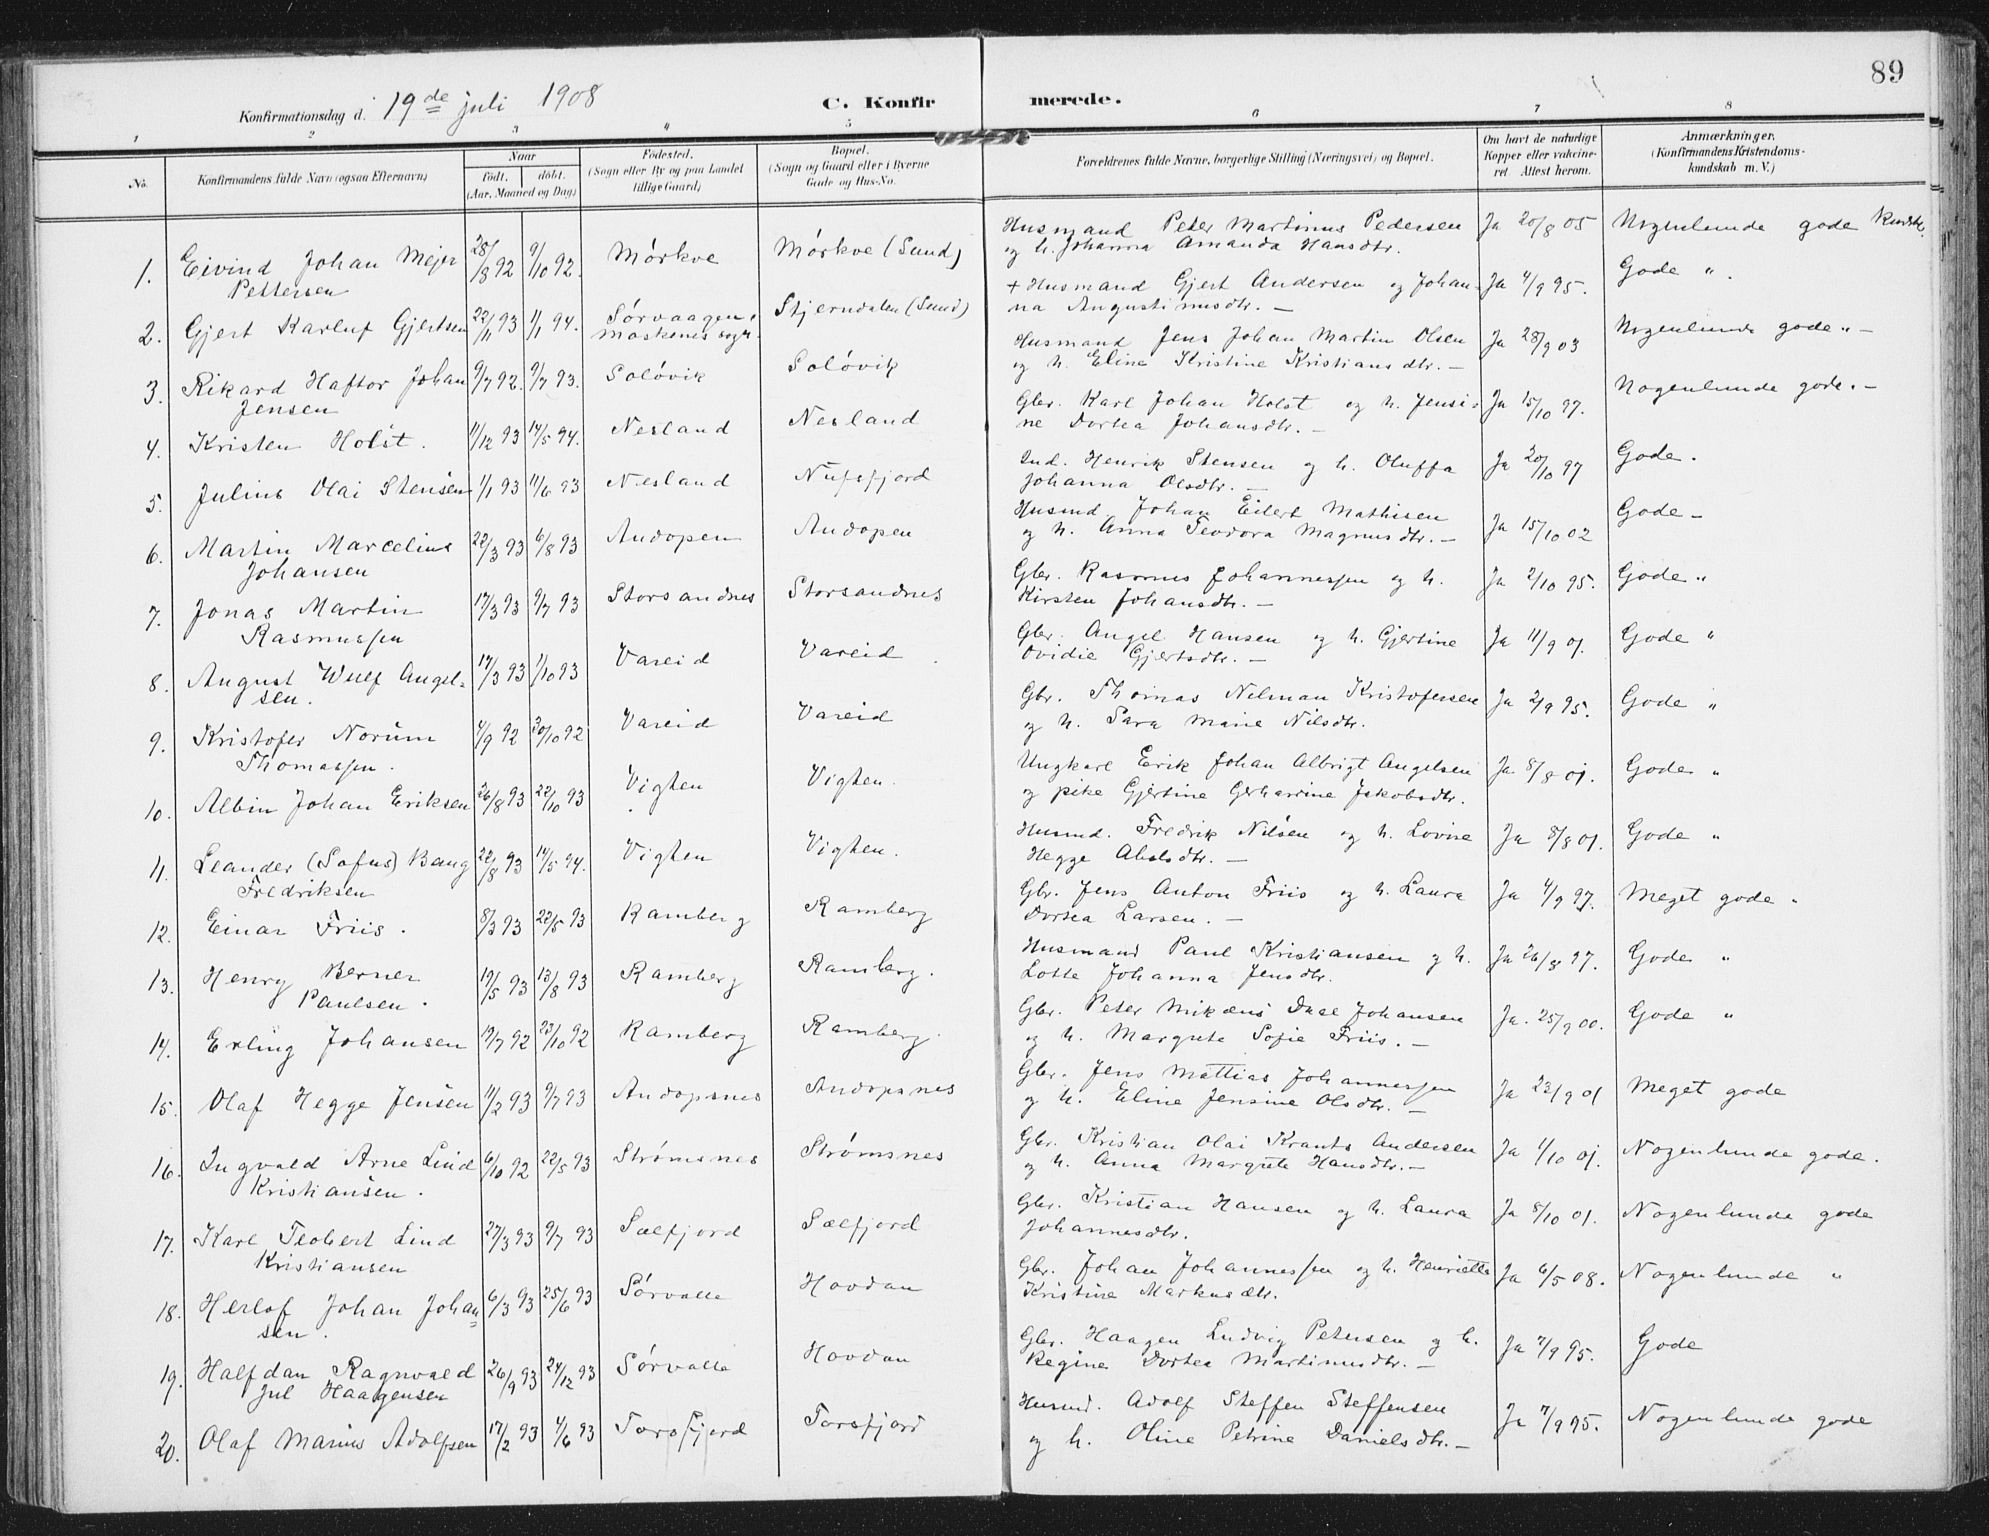 89
Konfirmationsdag d. 19de juli 1908
C. Konfirmerede.
1 2 3 4 5 6 7 8
No. Konfirmandens fulde Navn (ogsaa Efternavn) Naar født. døbt. (Aar, Maaned og Dag) Fødested. (Sogn eller By og paa Landet tillige Gaard) Bopæl. (Sogn og Gaard eller i Byerne Gade og Hus-No. Forældrenes fulde Navne, borgerlige Stilling (Næringsvei) og Bopæl. Om havt de naturlige Kopper eller vakcineret Attest herom. Anmærkninger. (Konfirmandens Kristendomskundskab m. V.)
1. Eivind Johan Mejer Pettersen 28/8 92 9/10 92. Mørkve Mørkve (Sund) Husmand Peter Martinus Pedersen og h. Johanna Amanda Hansdtr. Ja 20/8 05 Nogenlunde gode
2. Gjert Karluf Gjertsen 22/11 93 1/1 94. Sørvaagen, Moskenes sogn. Stjerndalen (Sund) + Husmand Gjert Andersen og Johanna Augustinusdtr. — Ja 4/9 95. Gode ".
3. Rikard Haftor Johan Jensen 9/7 92. 9/7 93. Soløvik Soløvik Husmand Jens Johan Martin Olsen og h. Eline Kristine Kristiansdtr. — Ja 28/9 03 Nogenlunde gode " —
4. Kristen Holst. 11/12 93 14/5 94. Nesland Nesland Gbr. Karl Johan Holst og h. Jensine Dortea Johansdtr. — Ja 15/10 97. Nogenlunde gode. —
5. Julius Olai Stensen 1/1 93 11/6 93 Nesland Nufsfjord Ind. Henrik Stensen og h. Oluffa Johanna Olsdtr. — Ja 20/10 97 Gode.
6. Martin Marcelius Johansen 22/3 93 6/8 93 Andopen Andopen Husmd. Johan Eilert Mathisen og h. Anna Teodora Magnusdtr. — Ja 15/10 02 Gode —
7. Jonas Martin Rasmussen 17/3 93 9/7 93 Storsandnes Storsandnes Gbr. Rasmus Johannessen og h. Kirsten Johansdtr. — Ja 2/10 95. Gode "
8. August Wulf Angelsen. 17/3 93 1/10 93 Vareid Vareid Gbr. Angel Hansen og h. Gjertine Ovidie Gjertsdtr. — Ja 11/9 01. Gode "
9. Kristofer Norum Thomassen. 4/9 92 30/10 92 Vareid Vareid Gbr. Thomas Nilman Kristofersen og h. Sara Marie Nilsdtr. Ja 2/9 95. Gode "
10. Albin Johan Eriksen 26/8 93 22/10 93 Vigten Vigten. Ungkarl Erik Johan Albrigt Angelsen og pike Gjertine Jakobsdtr. Ja 8/8 01. Gode "
11. Leander (Sofus) Bang Fredriksen 22/8 93 14/5 94. Vigten Vigten. Husmd. Fredrik Nilsen og h. Lovise Hegge Abelsdtr. — Ja 8/8 01. Gode "
12. Einar Friis. 8/3 93 22/5 93 Ramberg Ramberg Gbr. Jens Anton Friis og h. Laura Dortea Larsen. — Ja 4/9 97. Meget gode "
13. Henry Berner Paulsen. 19/5 93 13/8 93 Ramberg Ramberg. Husmand Paul Kristiansen og h. Lotte Johanna Jensdtr. Ja 26/8 97. Gode "
14. Erling Johansen 19/7 92 23/10 92 Ramberg Ramberg. Gbr. Peter Mikæus Johansen og h. Margrete Sofie Friis. — Ja. 25/9 00. Gode "
15. Olaf Hegge Jensen 11/2 93 9/7 93 Andopsnes Andopsnes Gbr. Jens Mattias Johannessen og h. Eline Jensine Olsdtr. — Ja 23/9 01 Meget gode
16. Ingvald Arne Lind Kristiansen. 6/10 92 22/5 93 Strømsnes Strømsnes Gbr. Kristian Olai Krants Andersen og h. Anna Margrete Hansdtr. — Ja 1/10 01. Nogenlunde gode.
17. Karl Teobert Lind Kristiansen 27/3 93 9/7 93 Sælfjord Sælfjord Gbr. Kristian Hansen og h. Laura Johannesdtr. Ja 8/10 01. Nogenlunde gode
18. Herlof Johan Johansen. 6/3 93 25/6 93 Sørvalle Hovdan Gbr. Johan Johannessen og h. Henriette Kristine Markusdtr. Ja 6/5 08. Nogenlunde "
19. Halfdan Ragnvald Jul Haagensen 26/9 93 24/12 93 Sørvalle Hovdan Gbr. Haagen Ludvig Petersen og h. Regine Dortea Martinusdtr. — Ja 7/9 95. Gode
20. Olaf Marius Adolfsen 17/2 93 4/6 93 Torsfjord Torsfjord Husmd. Adolf Steffen Steffensen og h. Oline Petrine Danielsdtr. — Ja 7/9 95. Nogenlunde gode